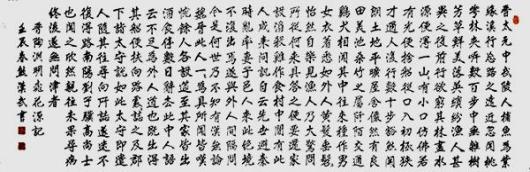 晋太元中武陵人捕魚為業
緣溪行忘路之遠近忽逢桃
花林夾岸數百步中無雜樹
芳草鮮美落英繽紛漁人甚
異之復前行欲窮其林林盡水
源便得一山山有小口仿佛若
有光便捨船從口入初極狹
才通人復行數十步豁然開
朗土地平曠屋舍儼然有良
田美池桑竹之屬阡陌交通
鷄犬相聞其中往來種作男
女衣着悉如外人黄髮垂髫
並怡然自樂見漁人乃大驚問
所從何來具答之便要還家
設酒殺鷄作食村中聞有此
人咸來問訊自云先世避秦
時亂率妻子邑人來此絕境
不復出焉遂與外人間隔問今
是何世乃不知有漢無論
魏晉此人一一為具言所聞皆嘆
惋餘人各復延至其家皆出
酒食停數日辭去此中人語
云不足為外人道也既出得
其船便扶向路處處誌之及郡
下詣太守說如此太守即遣
人隨其往尋向所誌遂迷不
復得路南陽劉子驥高尚士也
聞之欣然親往未果尋病
終後遂無問津者
晉陶淵明桃花源記
壬辰春熊漢武書